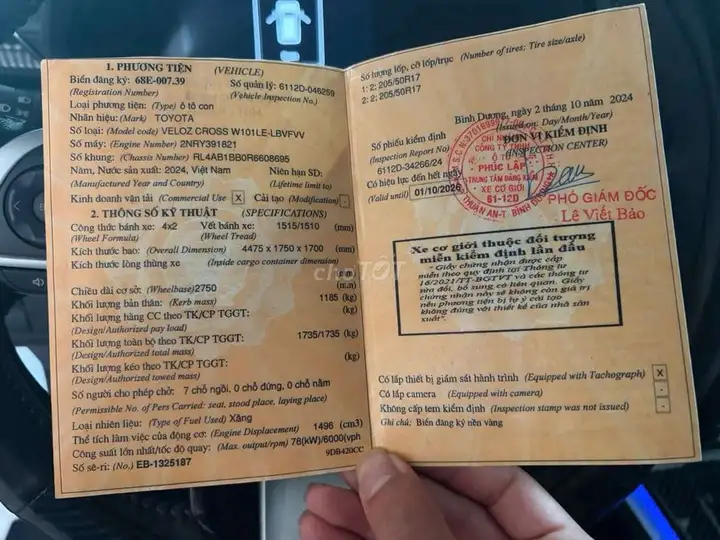 1. PHƯƠNG TIỆN (VEHICLE)
Biển đăng ký: 68E-007.39 Số quản lý: 6112D-046259
(Registration Number) (Vehicle Inspection No.)
Loại phương tiện: (Type) ô tô con
Nhãn hiệu: (Mark) TOYOTA
Số loại: (Model code) VELOZ CROSS W101LE-LBVFVV
Số máy: (Engine Number) 2NRY391821
Số khung: (Chassis Number) RL4AB1BB0R6608695
Năm, Nước sản xuất: 2024, Việt Nam Niên hạn SD:
(Manufactured Year and Country) (Lifetime limit to)
Kinh doanh vận tải (Commercial Use) X Cải tạo (Modification) -
2. THÔNG SỐ KỸ THUẬT (SPECIFICATIONS)
Công thức bánh xe: 4x2 Vết bánh xe: 1515/1510 (mm)
(Wheel Formula) (Wheel Tread)
Kích thước bao: (Overall Dimension) 4475 x 1750 x 1700 (mm)
Kích thước lòng thùng xe (Inside cargo container dimension)
(mm)
Chiều dài cơ sở: (Wheelbase) 2750 (mm)
Khối lượng bản thân: (Kerb mass) 1185 (kg)
Khối lượng hàng CC theo TK/CP TGGT: (kg)
(Design/Authorized pay load)
Khối lượng toàn bộ theo TK/CP TGGT: 1735/1735 (kg)
(Design/Authorized total mass)
Khối lượng kéo theo TK/CP TGGT: (kg)
(Design/Authorized towed mass)
Số người cho phép chở: 7 chỗ ngồi, 0 chỗ đứng, 0 chỗ nằm
(Permissible No. of Pers Carried: seat, stood place, laying place)
Loại nhiên liệu: (Type of Fuel Used) Xăng
Thể tích làm việc của động cơ: (Engine Displacement) 1496 (cm3)
Công suất lớn nhất/tốc độ quay: (Max. output/rpm) 78(kW)/6000(vph
9DB420CC
Số sê-ri: (No.) EB-1325187
Số lượng lốp, cỡ lốp/trục (Number of tires; Tire size/axle)
1: 2; 205/50R17
2: 2; 205/50R17
Bình Dương, ngày 2 tháng 10 năm 2024
(Issued on: Day/Month/Year)
Số phiếu kiểm định ĐƠN VỊ KIỂM ĐỊNH
(Inspection Report No) (INSPECTION CENTER)
6112D-34266/24
Có hiệu lực đến hết ngày
(Valid until) 01/10/2026
CÔNG TY TNHH
PHÚC LẬP
TRUNG TÂM ĐĂNG KIỂM
XE CƠ GIỚI
61-12D
THUẬN AN-T. BÌNH DƯƠNG
PHÓ GIÁM ĐỐC
Lê Viết Bảo
Xe cơ giới thuộc đối tượng
miễn kiểm định lần đầu
"Giấy chứng nhận được cấp
miễn theo quy định tại Thông tư
16/2021/TT-BGTVT và các thông tư
sửa đổi, bổ sung có liên quan. Giấy
chứng nhận này sẽ không còn giá trị
nếu phương tiện bị tự ý cải tạo
không đúng với thiết kế của nhà sản
xuất".
Có lắp thiết bị giám sát hành trình (Equipped with Tachograph) X
Có lắp camera (Equipped with camera) -
Không cấp tem kiểm định (Inspection stamp was not issued) -
Ghi chú: Biển đăng ký nền vàng
chợTỐT